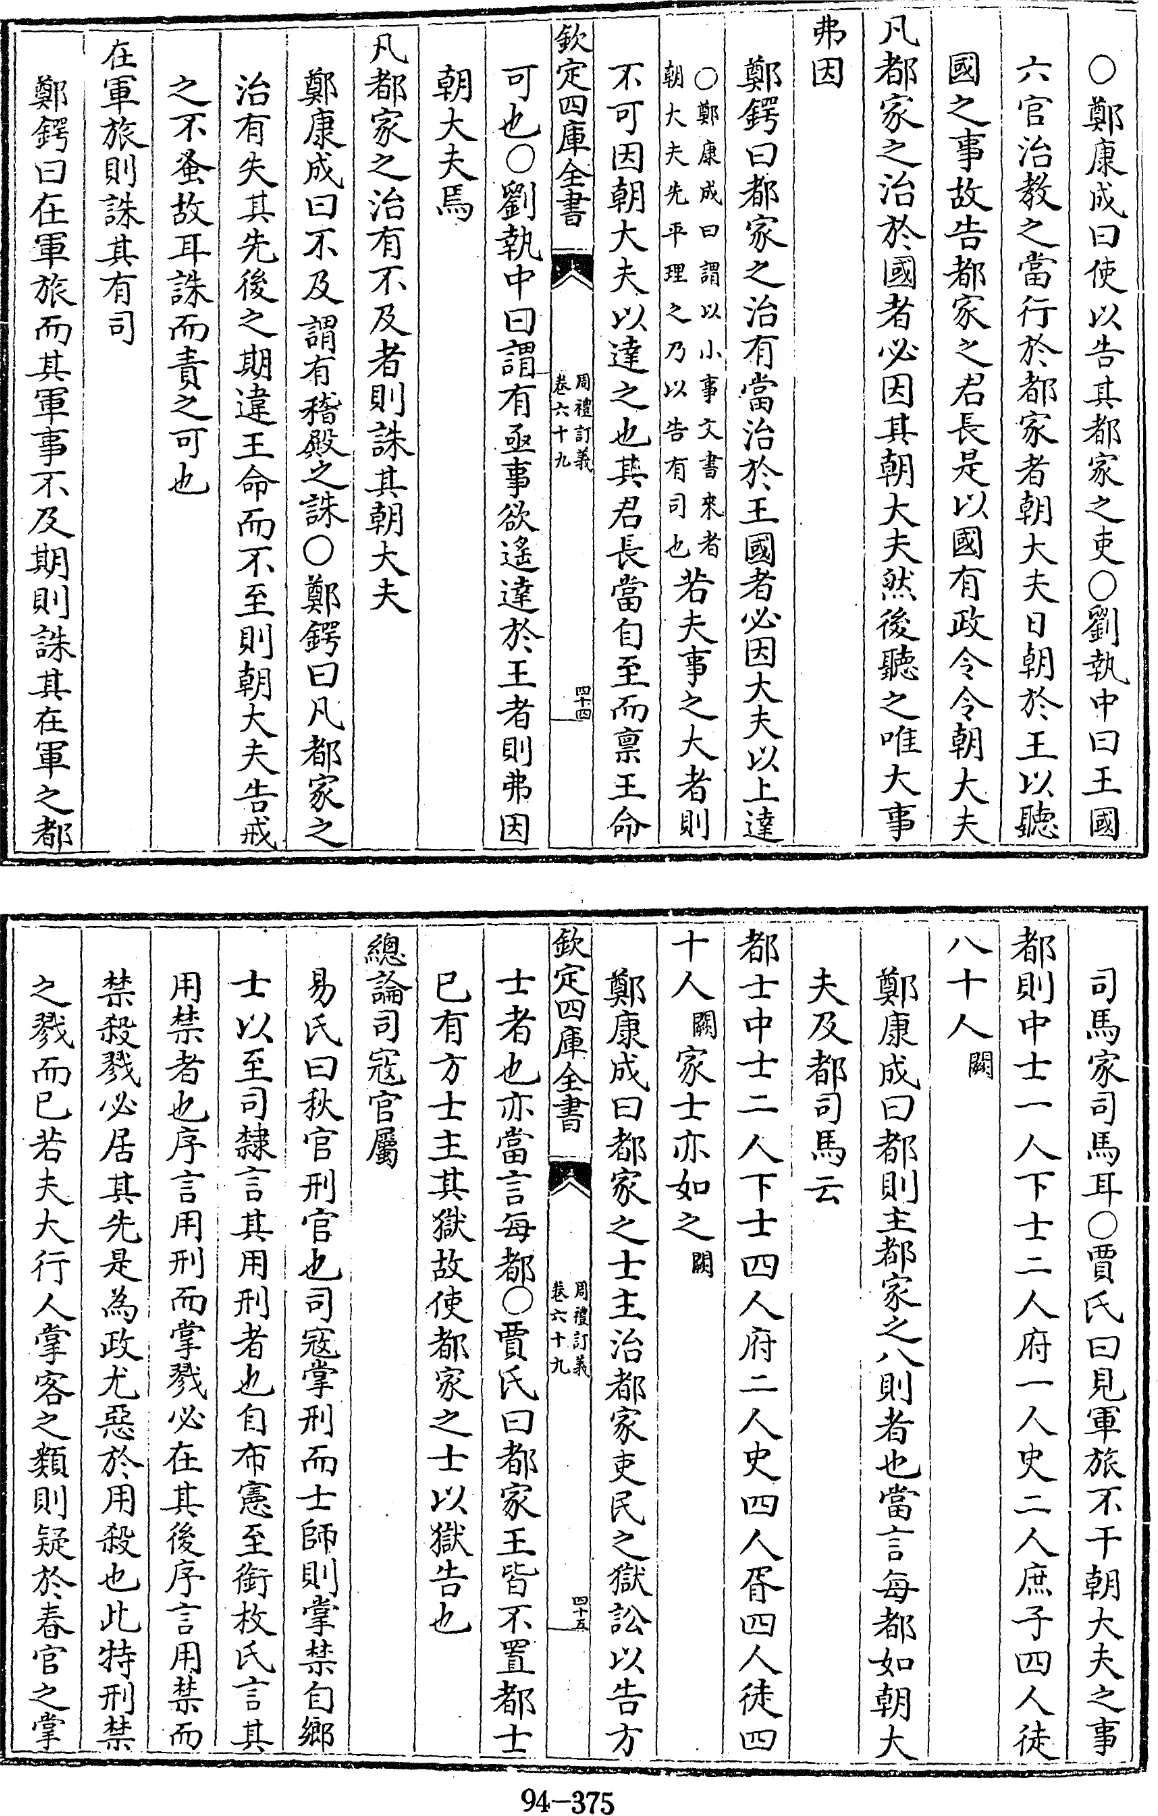 ○鄭康成曰使以告其都家之吏○劉執中曰王國
六官治教之當行於都家者朝大夫日朝於王以聽
國之事故告都家之君長是以國有政令令朝大夫
凡都家之治於國者必因其朝大夫然後聽之唯大事
弗因
鄭鍔曰都家之治有當治於王國者必因大夫以上達
○鄭康成曰謂以小事文書來者
朝大夫先平理之乃以告有司也
若夫事之大者則
不可因朝大夫以達之也其君長當自至而禀王命
欽定四庫全書
周禮訂義
卷六十九
四十四
可也○劉執中曰謂有亟事欲遙達於王者則弗因
朝大夫焉
凡都家之治有不及者則誅其朝大夫
鄭康成曰不及謂有稽殿之誅○鄭鍔曰凡都家之
治有失其先後之期違王命而不至則朝大夫告戒
之不蚤故耳誅而責之可也
在軍旅則誅其有司
鄭鍔曰在軍旅而其軍事不及期則誅其在軍之都
司馬家司馬耳○賈氏曰見軍旅不干朝大夫之事
都則中士一人下士二人府一人史二人庶子四人徒
八十人闕
鄭康成曰都則主都家之八則者也當言每都如朝大
夫及都司馬云
都士中士二人下士四人府二人史四人胥四人徒四
十人闕家士亦如之闕
鄭康成曰都家之士主治都家吏民之獄訟以告方
欽定四庫全書
周禮訂義
卷六十九
四十五
士者也亦當言每都○賈氏曰都家王皆不置都士
已有方士主其獄故使都家之士以獄告也
總論司寇官屬
易氏曰秋官刑官也司寇掌刑而士師則掌禁自鄉
士以至司隸言其用刑者也自布憲至銜枚氏言其
用禁者也序言用刑而掌戮必在其後序言用禁而
禁殺戮必居其先是為政尤惡於用殺也此特刑禁
之戮而已若夫大行人掌客之類則疑於春官之掌
94-375